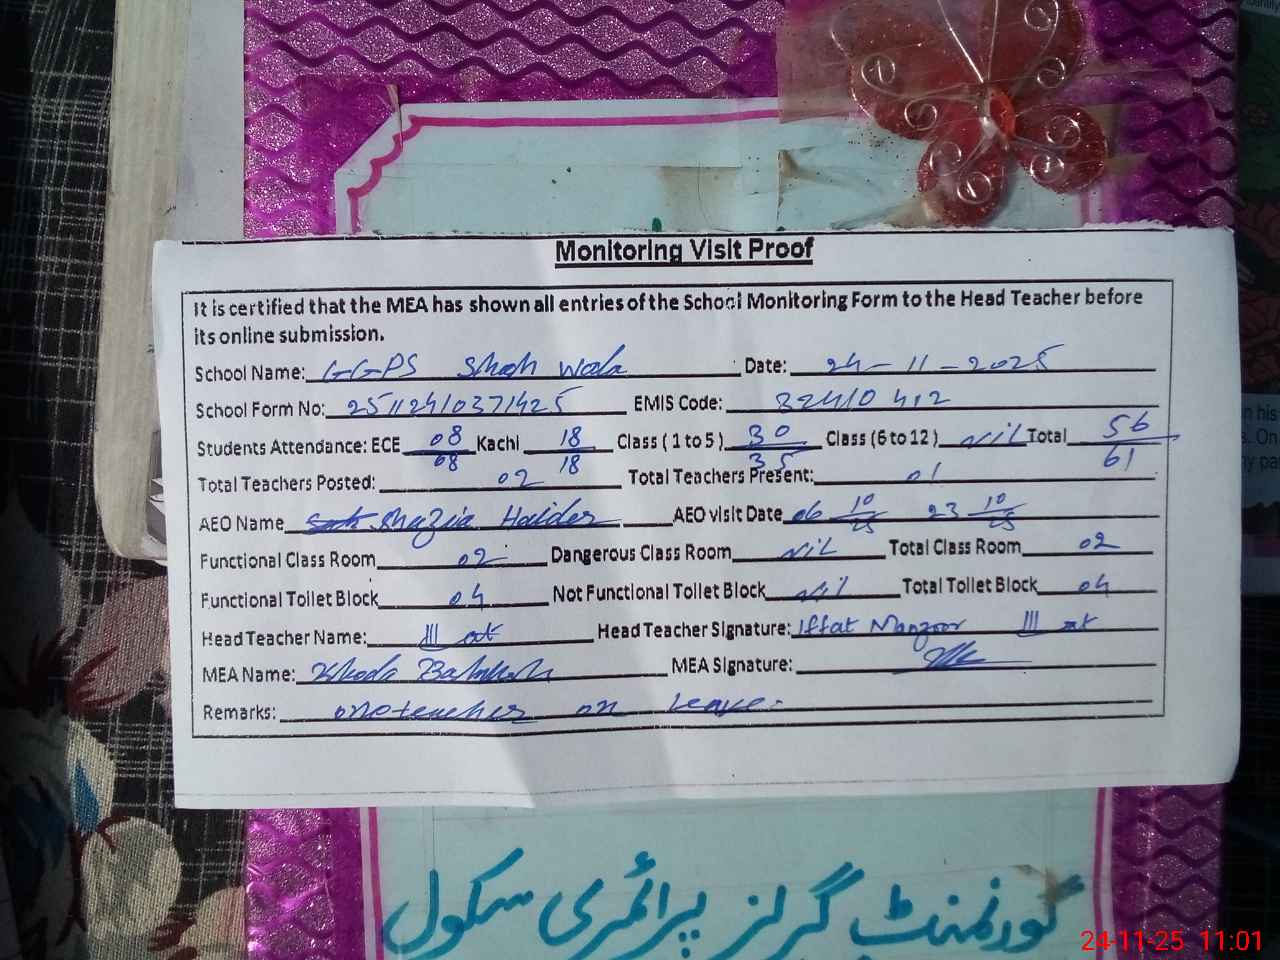 Monitoring Visit Proof
It is certified that the MEA has shown all entries of the School Monitoring Form to the Head Teacher before
its online submission.
School Name: GGPS Shah Wala Date: 24-11-2025
School Form No: 25112410371425 EMIS Code: 32410412
Students Attendance: ECE 08/08 Kachi 18/18 Class (1 to 5) 30/35 Class (6 to 12) Nil Total 56/61
Total Teachers Posted: 02 Total Teachers Present: 01
AEO Name Shazia Haider AEO visit Date 06 10/25 23 10/25
Functional Class Room 02 Dangerous Class Room Nil Total Class Room 02
Functional Toilet Block 04 Not Functional Toilet Block Nil Total Toilet Block 04
Head Teacher Name: Head Teacher Signature: Iffat Manzoor
MEA Name: Khuda Bakhsh MEA Signature:
Remarks: one teacher on leave.
گورنمنٹ گرلز پرائمری سکول
24-11-25 11:01